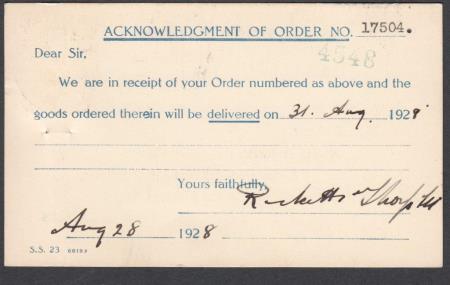 ACKNOWLEDGMENT OF ORDER NO. 17504.
4548
Dear Sir,
We are in receipt of your Order numbered as above and the
goods ordered therein will be delivered on 31. Aug. 1928
Yours faithfully,
Ricketts & Thorp Ltd
Aug 28 1928
S.S. 23